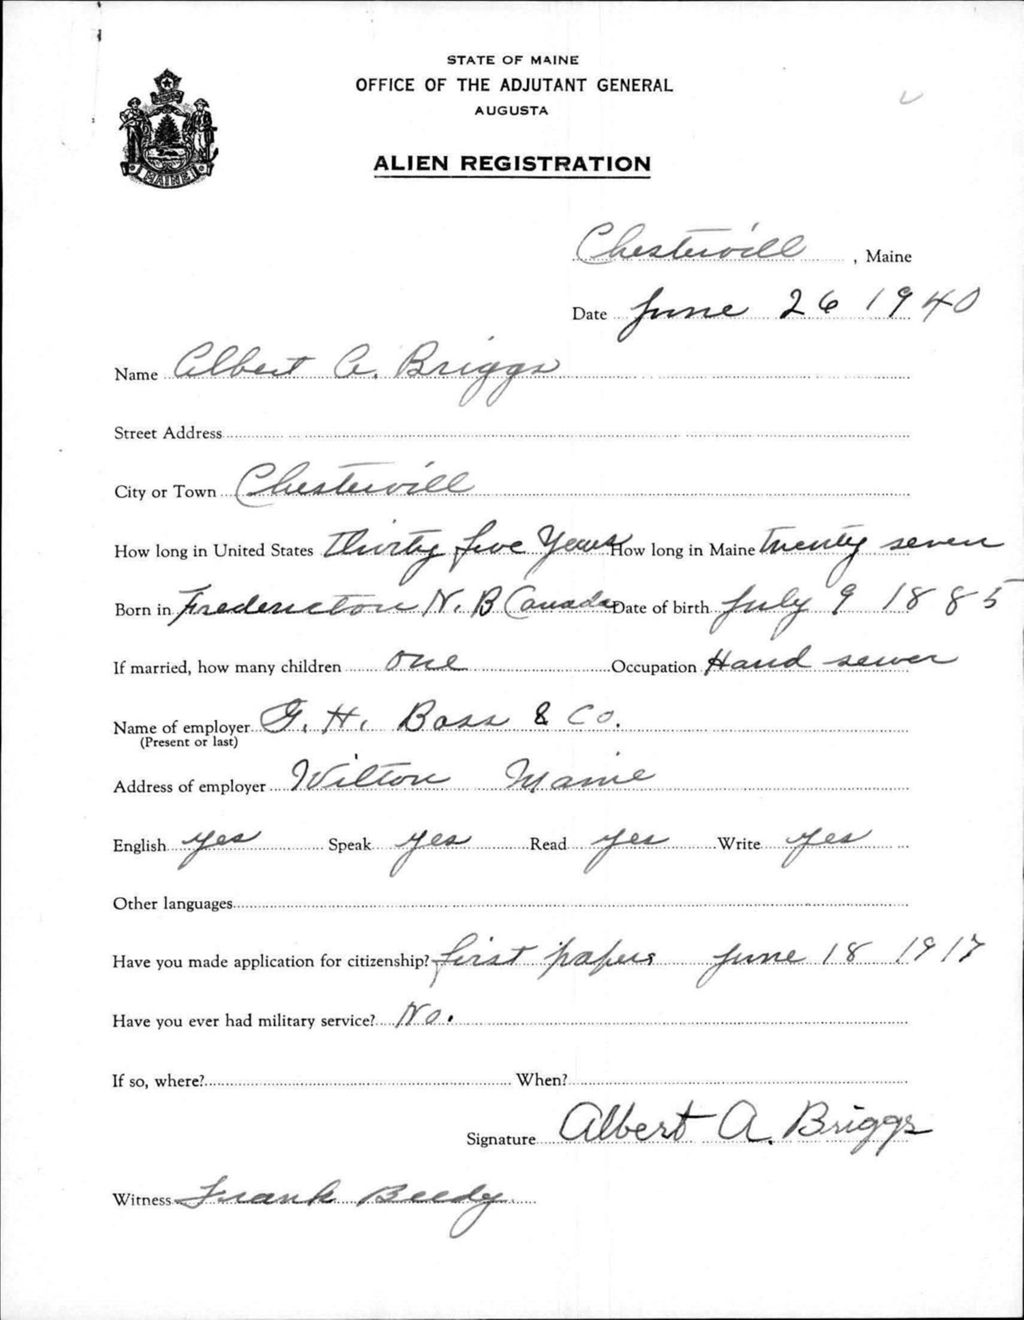 STATE OF MAINE
OFFICE OF THE ADJUTANT GENERAL
AUGUSTA
ALIEN REGISTRATION
MAINE
Chestervill, Maine
Date June 26 1940
Name Albert A. Briggs
Street Address
City or Town Chestervill
How long in United States Thirty five Years How long in Maine twenty seven
Born in Fredericton N. B Canada Date of birth July 9 1885
If married, how many children one Occupation Hand sewer
Name of employer G. H. Bass & Co.
(Present or last)
Address of employer Wilton Maine
English yes Speak yes Read yes Write yes
Other languages
Have you made application for citizenship? first papers June 18 1917
Have you ever had military service? No.
If so, where? When?
Signature Albert A. Briggs
Witness Frank Beedy